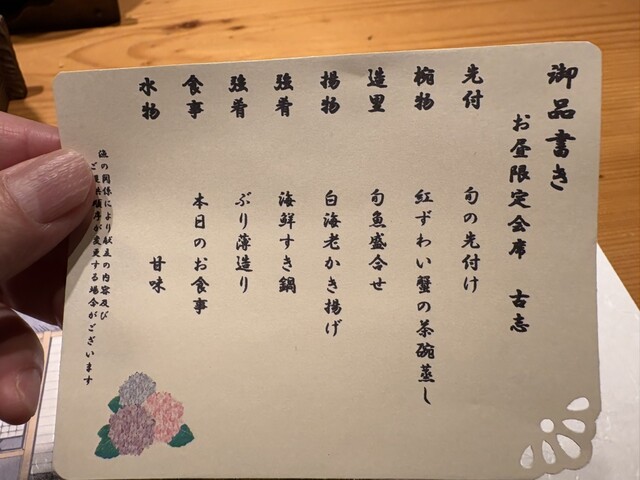 御品書き
お昼限定会席 古志
先付 旬の先付け
椀物 紅ずわい蟹の茶碗蒸し
造里 旬魚盛合せ
揚物 白海老かき揚げ
強肴 海鮮すき鍋
強肴 ぶり薄造り
食事 本日のお食事
水物 甘味
漁の関係により献立の内容及び
ご提供順序が変更する場合がございます